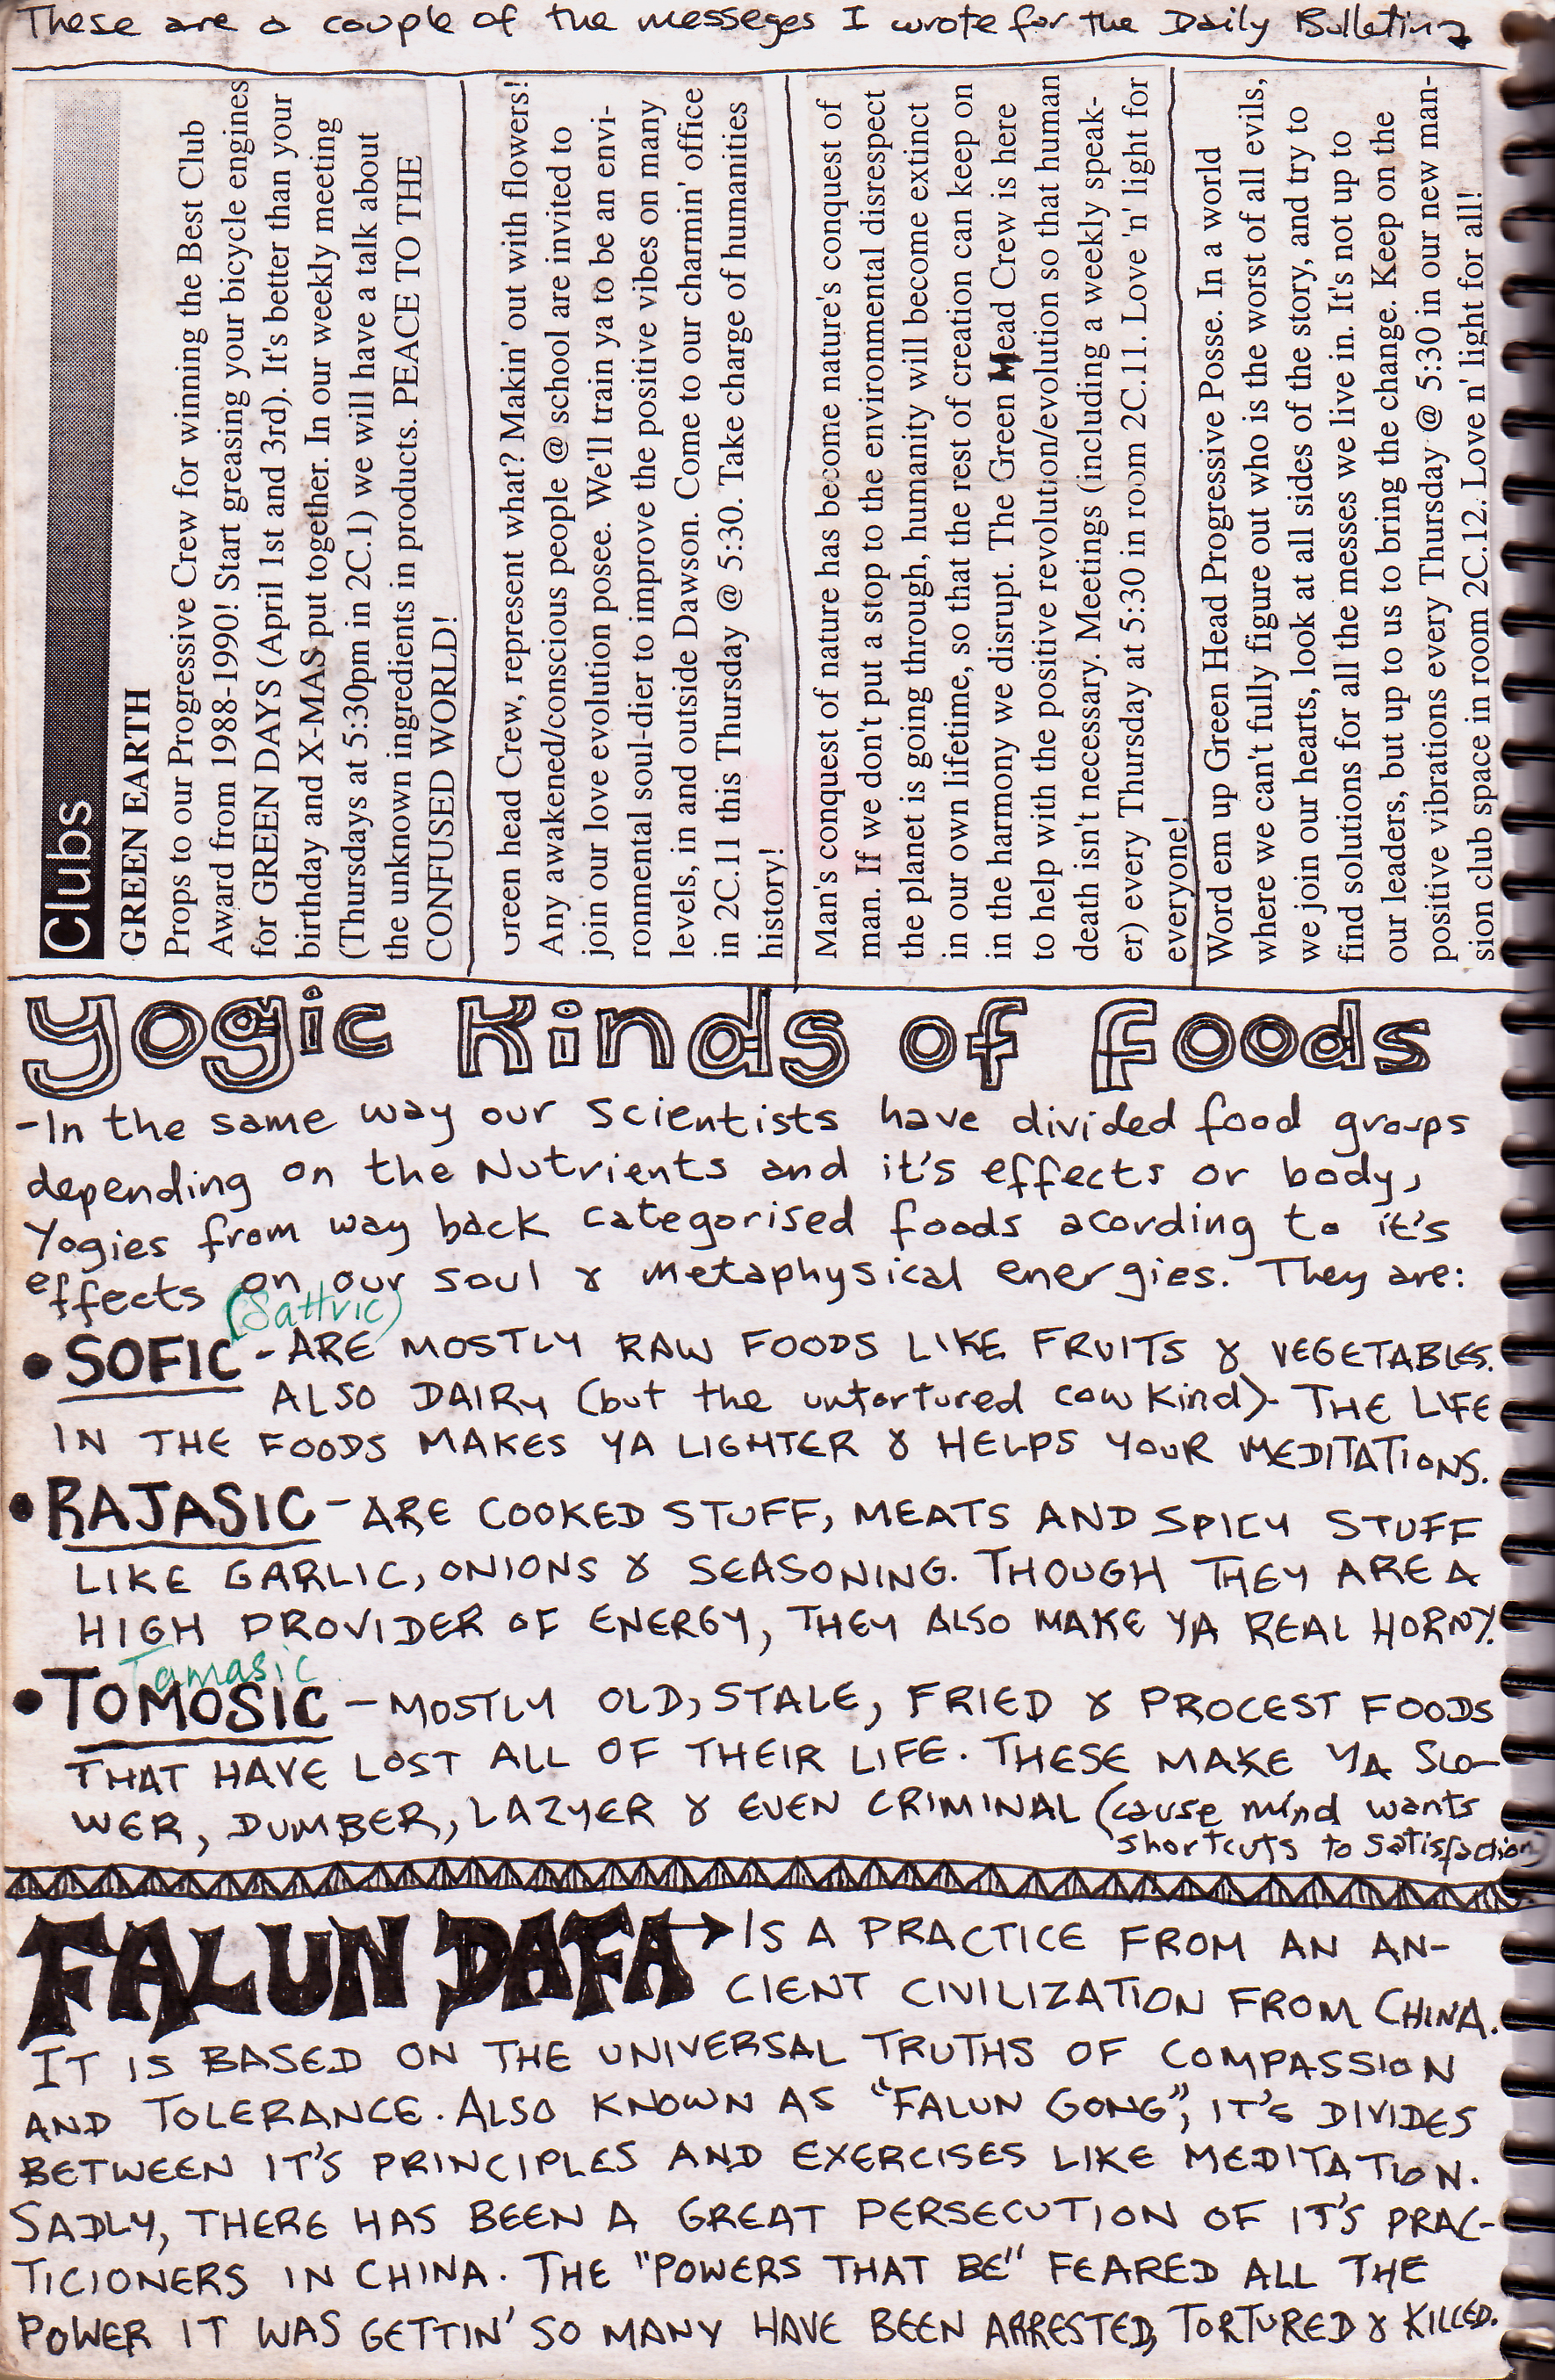 These are a couple of the messeges I wrote for the Daily Bulletin
Clubs
GREEN EARTH
Props to our Progressive Crew for winning the Best Club
Award from 1988-1990! Start greasing your bicycle engines
for GREEN DAYS (April 1st and 3rd). It's better than your
birthday and X-MAS put together. In our weekly meeting
(Thursdays at 5:30pm in 2C.1) we will have a talk about
the unknown ingredients in products. PEACE TO THE
CONFUSED WORLD!
Green head Crew, represent what? Makin' out with flowers!
Any awakened/conscious people @ school are invited to
join our love evolution posee. We'll train ya to be an envi-
ronmental soul-dier to improve the positive vibes on many
levels, in and outside Dawson. Come to our charmin' office
in 2C.11 this Thursday @ 5:30. Take charge of humanities
history!
Man's conquest of nature has become nature's conquest of
man. If we don't put a stop to the environmental disrespect
the planet is going through, humanity will become extinct
in our own lifetime, so that the rest of creation can keep on
in the harmony we disrupt. The Green Mead Crew is here
to help with the positive revolution/evolution so that human
death isn't necessary. Meetings (including a weekly speak-
er) every Thursday at 5:30 in room 2C.11. Love 'n' light for
everyone!
Word em up Green Head Progressive Posse. In a world
where we can't fully figure out who is the worst of all evils,
we join our hearts, look at all sides of the story, and try to
find solutions for all the messes we live in. It's not up to
our leaders, but up to us to bring the change. Keep on the
positive vibrations every Thursday @ 5:30 in our new man-
sion club space in room 2C.12. Love n' light for all!
Yogic Kinds of foods
-In the same way our scientists have divided food groups
depending on the Nutrients and it's effects or body,
Yogies from way back categorised foods acording to it's
effects on our soul & metaphysical energies. They are:
(Sattvic)
• SOFIC - ARE MOSTLY RAW FOODS LIKE FRUITS & VEGETABLES.
ALSO DAIRY (but the untortured cow kind)- THE LIFE
IN THE FOODS MAKES YA LIGHTER & HELPS YOUR MEDITATIONS.
• RAJASIC - ARE COOKED STUFF, MEATS AND SPICY STUFF
LIKE GARLIC, ONIONS & SEASONING. THOUGH THEY ARE A
HIGH PROVIDER OF ENERGY, THEY ALSO MAKE YA REAL HORNY.
Tamasic
• TOMOSIC - MOSTLY OLD, STALE, FRIED & PROCEST FOODS
THAT HAVE LOST ALL OF THEIR LIFE. THESE MAKE YA SLO-
WER, DUMBER, LAZYER & EVEN CRIMINAL (cause mind wants
shortcuts to satisfaction)
FALUN DAFA → IS A PRACTICE FROM AN AN-
CIENT CIVILIZATION FROM CHINA.
IT IS BASED ON THE UNIVERSAL TRUTHS OF COMPASSION
AND TOLERANCE. ALSO KNOWN AS "FALUN GONG", IT'S DIVIDES
BETWEEN IT'S PRINCIPLES AND EXERCISES LIKE MEDITATION.
SADLY, THERE HAS BEEN A GREAT PERSECUTION OF IT'S PRAC-
TICIONERS IN CHINA. THE "POWERS THAT BE" FEARED ALL THE
POWER IT WAS GETTIN' SO MANY HAVE BEEN ARRESTED, TORTURED & KILLED.